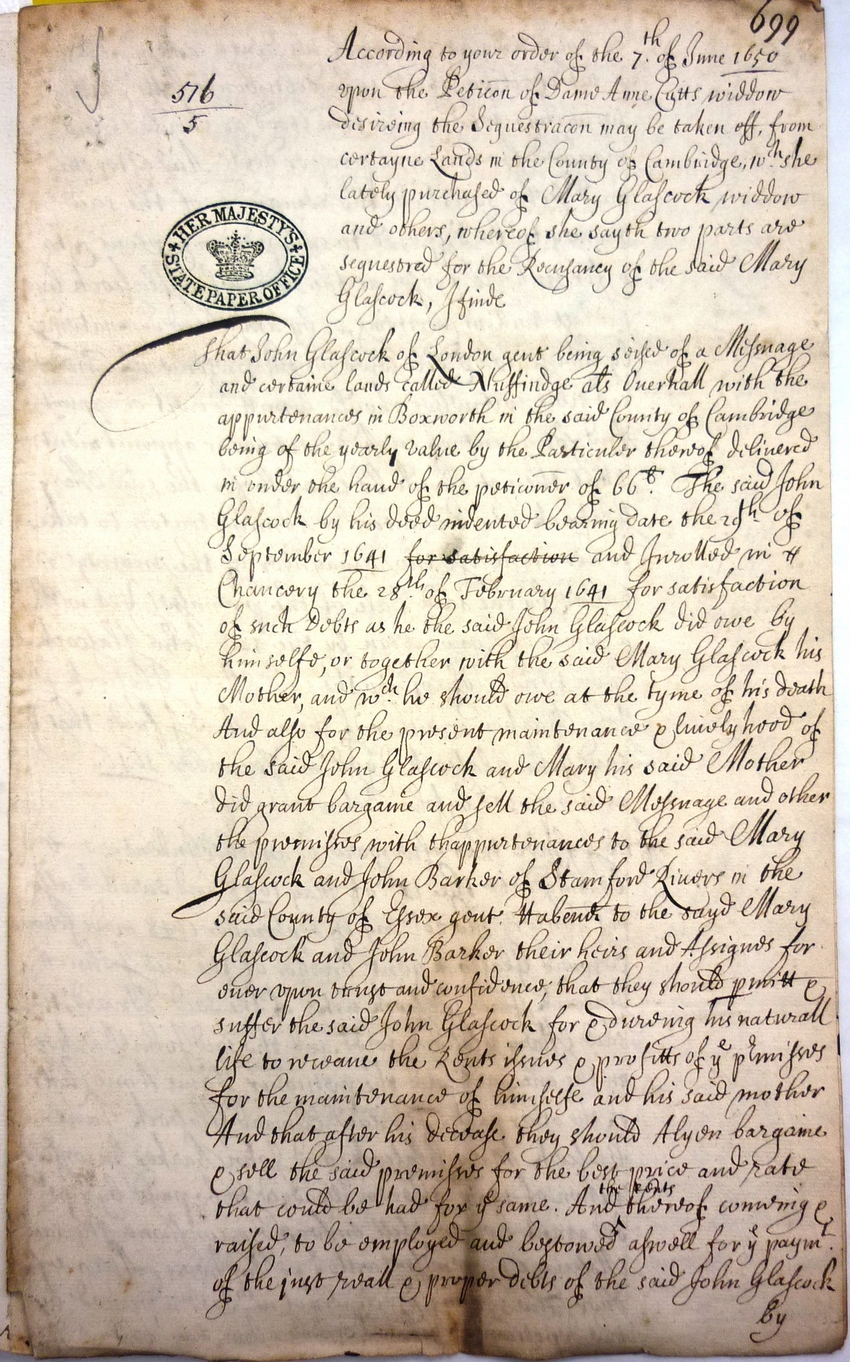 699
516
5
HER MAJESTY'S
STATE PAPER OFFICE
According to your order of the 7th of June 1650
vpon the Peticon of Dame Anne Cutts widdow
desireing the Sequestracon may be taken off, from
certayne Lands in the County of Cambridge, wch she
lately purchased of Mary Glascock widdow
and others, whereof she sayth two parts are
sequestred for the Recusancy of the said Mary
Glascock, I finde
That John Glascock of London gent being seised of a Messuage
and certaine lands called Huffindge als Ouerhall with the
appurtenances in Boxworth in the said County of Cambridge
being of the yearly value by the Particuler thereof delivered
in vnder the hand of the peticoner of 66li. The said John
Glascock by his deed indented bearing date the 29th of
September 1641 for satisfaction and Inrolled in
Chancery the 28th of February 1641 for satisfaction
of such Debts as he the said John Glascock did owe by
himselfe, or together with the said Mary Glascock his
Mother, and wch he should owe at the tyme of his death
And also for the present maintenance & liuelyhood of
the said John Glascock and Mary his said Mother
did grant bargaine and sell the said Messuage and other
the premisses with thappurtenances to the said Mary
Glascock and John Barker of Stamford Riuers in the
said County of Essex gent. Habend to the sayd Mary
Glascock and John Barker their heirs and Assignes for
euer vpon trust and confidence, that they should pmitt &
suffer the said John Glascock for & dureing his naturall
life to receaue the Rents issues & profitts of ye pmisses
for the maintenance of himselfe and his said mother
And that after his decease they should Alyen bargaine
& sell the said premisses for the best price and rate
that could be had for ye same. And the rents thereof comeing &
raised, to be employed and bestowed aswell for ye paymt.
of the just reall & proper debts of the said John Glascock
by